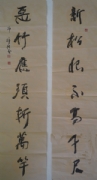 新松恨不高千尺
惡竹應須斬萬竿